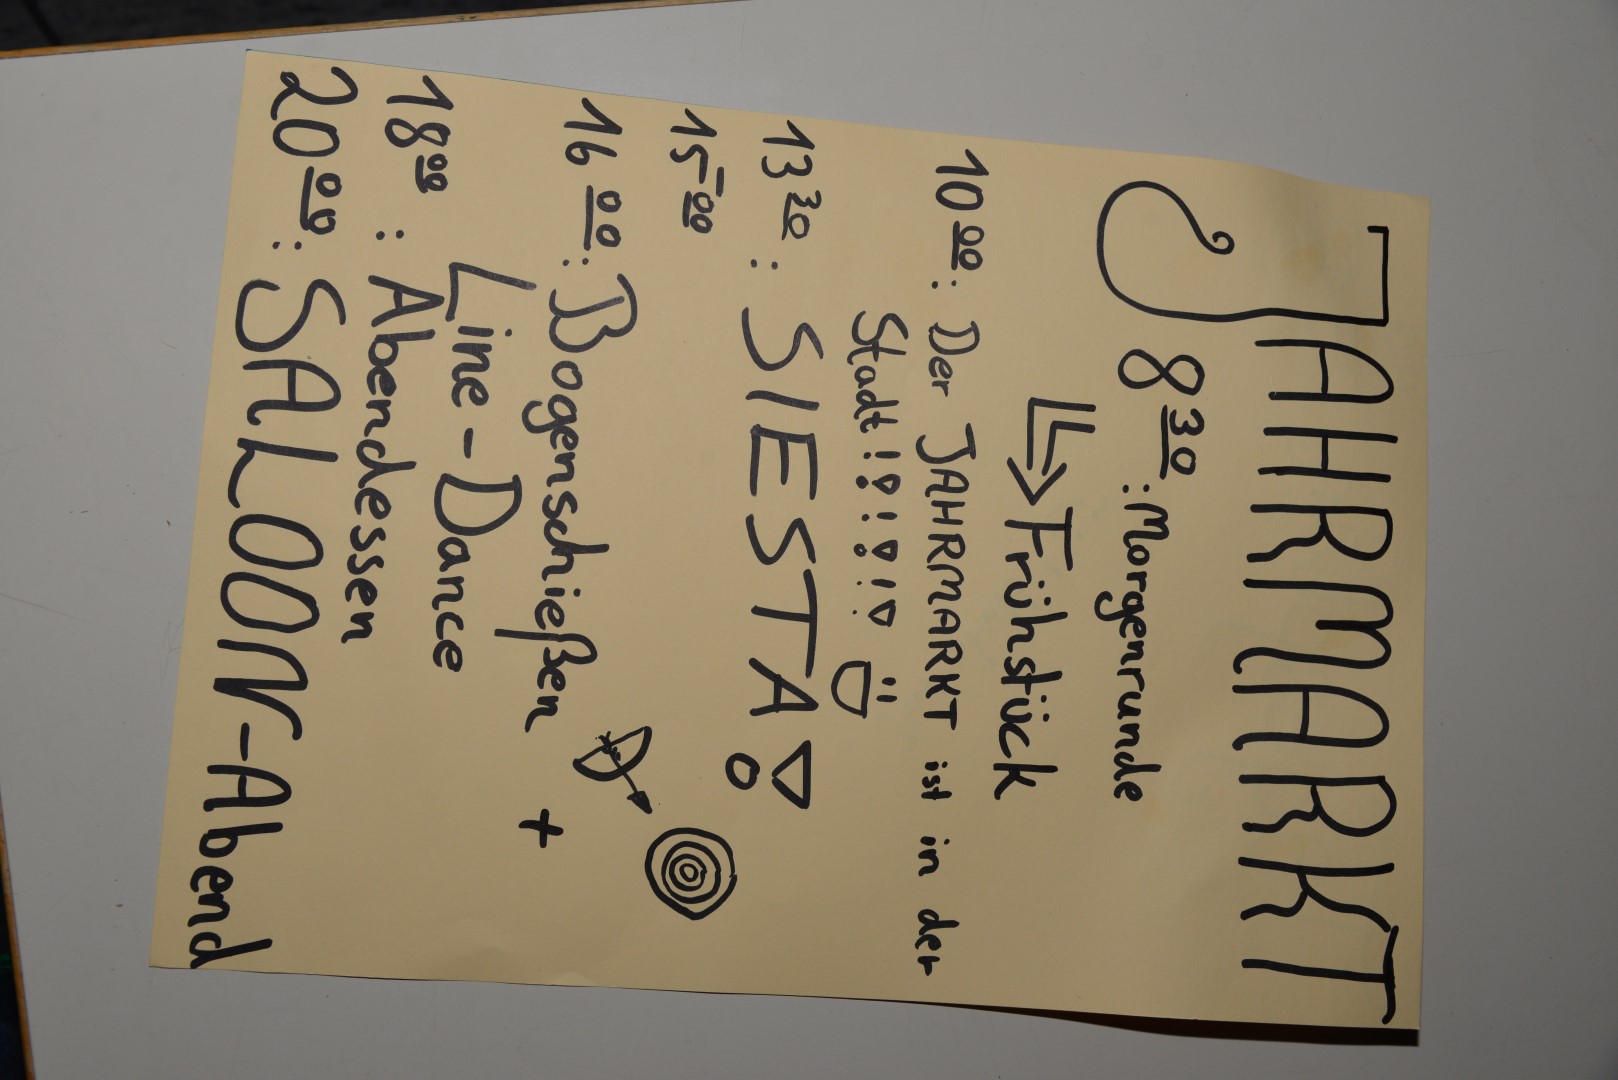 JAHRMARKT
8 30 : Morgenrunde
Frühstück
10 00 : Der JAHRMARKT ist in der
Stadt!!!!!!
13 30 : SIESTA!
15 - 00
16 00 : Bogenschießen +
Line-Dance
18 00 : Abendessen
20 00 : SALOON-Abend